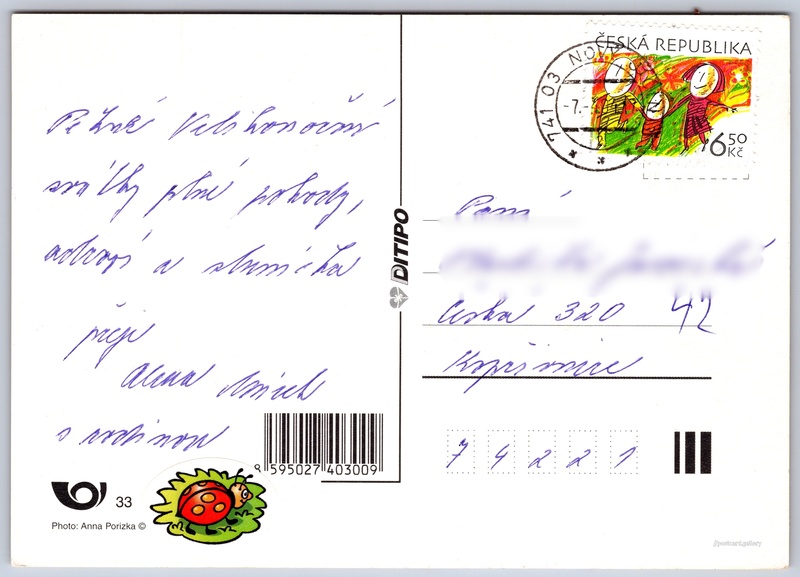 Pěkné Velikonoční
svátky plné pohody,
zdraví a sluníčka
přeje
Alena
s rodinou
8 595027 403009
33
Photo: Anna Porizka ©
DITIPO
741 03 NOV
-7.-
ČESKÁ REPUBLIKA
6 50
Kč
Paní
Česká 320 42
Kopřivnice
74221
postcard.gallery